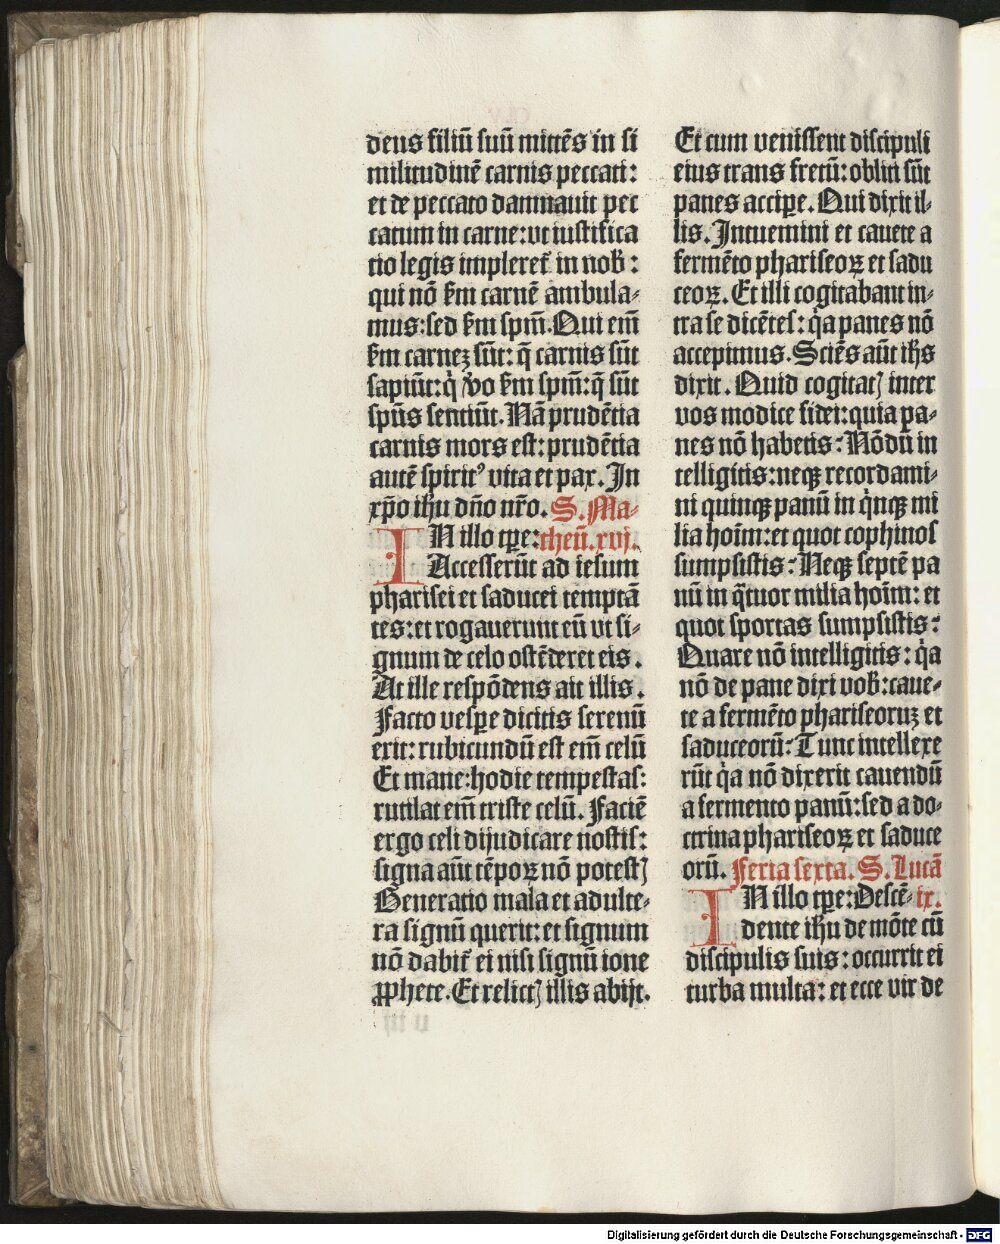 deus filiū suū mittēs in si
militudinē carnis peccati:
et de peccato damnauit pec
catum in carne: vt iustifica
tio legis impleret̄ in nob̄:
qui nō ẜm carnē ambula⸗
mus: sed ẜm spm̄. Qui em̄
ẜm carneꝫ sūt: q̄ carnis sūt
sapiūt: q̇ ꝟo ẜm spm̄: q̄ sūt
spūs sentiūt. Nā prudētia
carnis mors est: prudētia
autē spiritꝰ vita et pax. In
xp̄o ih̄u dn̄o nr̄o. S. Ma⸗
IN illo tꝑe: theū. xvj.
Accesserūt ad iesum
pharisei et saducei temptā
tes: et rogauerunt eū vt si⸗
gnum de celo ostēderet eis.
At ille respōdens ait illis.
Facto vesꝑe dicitis serenū
erit: rubicundū est em̄ celū
Et mane: hodie tempestas:
rutilat em̄ triste celū. Faciē
ergo celi dijudicare nostis:
signa aūt tēpoꝝ nō potestꝭ
Generatio mala et adulte⸗
ra signū querit: et signum
nō dabit̄ ei nisi signū ione
ꝓphete. Et relictꝭ illis abijt.
Et cum venissent discipuli
eius trans fretū: obliti sūt
panes acciꝑe. Qui dixit il⸗
lis. Intuemini et cauete a
fermēto phariseoꝝ et sadu
ceoꝝ. Et illi cogitabant in⸗
tra se dicētes: q̇a panes nō
accepimus. Sciēs aūt ih̄s
dixit. Quid cogitatꝭ inter
vos modice fidei: quia pa⸗
nes nō habetis: Nōdū in
telligitis: neqꝫ recordami⸗
ni quinqꝫ panū in q̇nqꝫ mi
lia hoīm: et quot cophinos
sumpsistis: Neqꝫ septē pa
nū in q̄tuor milia hoīm: et
quot sportas sumpsistis:
Quare nō intelligitis: q̇a
nō de pane dixi vob̄: caue⸗
te a fermēto phariseoruꝫ et
saduceorū: Tunc intellexe
rūt q̇a nō dixerit cauendū
a fermento panū: sed a do⸗
ctrina phariseoꝝ et saduce
orū. Feria sexta. S. Lucā
IN illo tꝑe: Descē⸗ ix.
dente ih̄u de mōte cū
discipulis suis: occurrit ei
turba multa: et ecce vir de
Digitalisierung gefördert durch die Deutsche Forschungsgemeinschaft - DFG